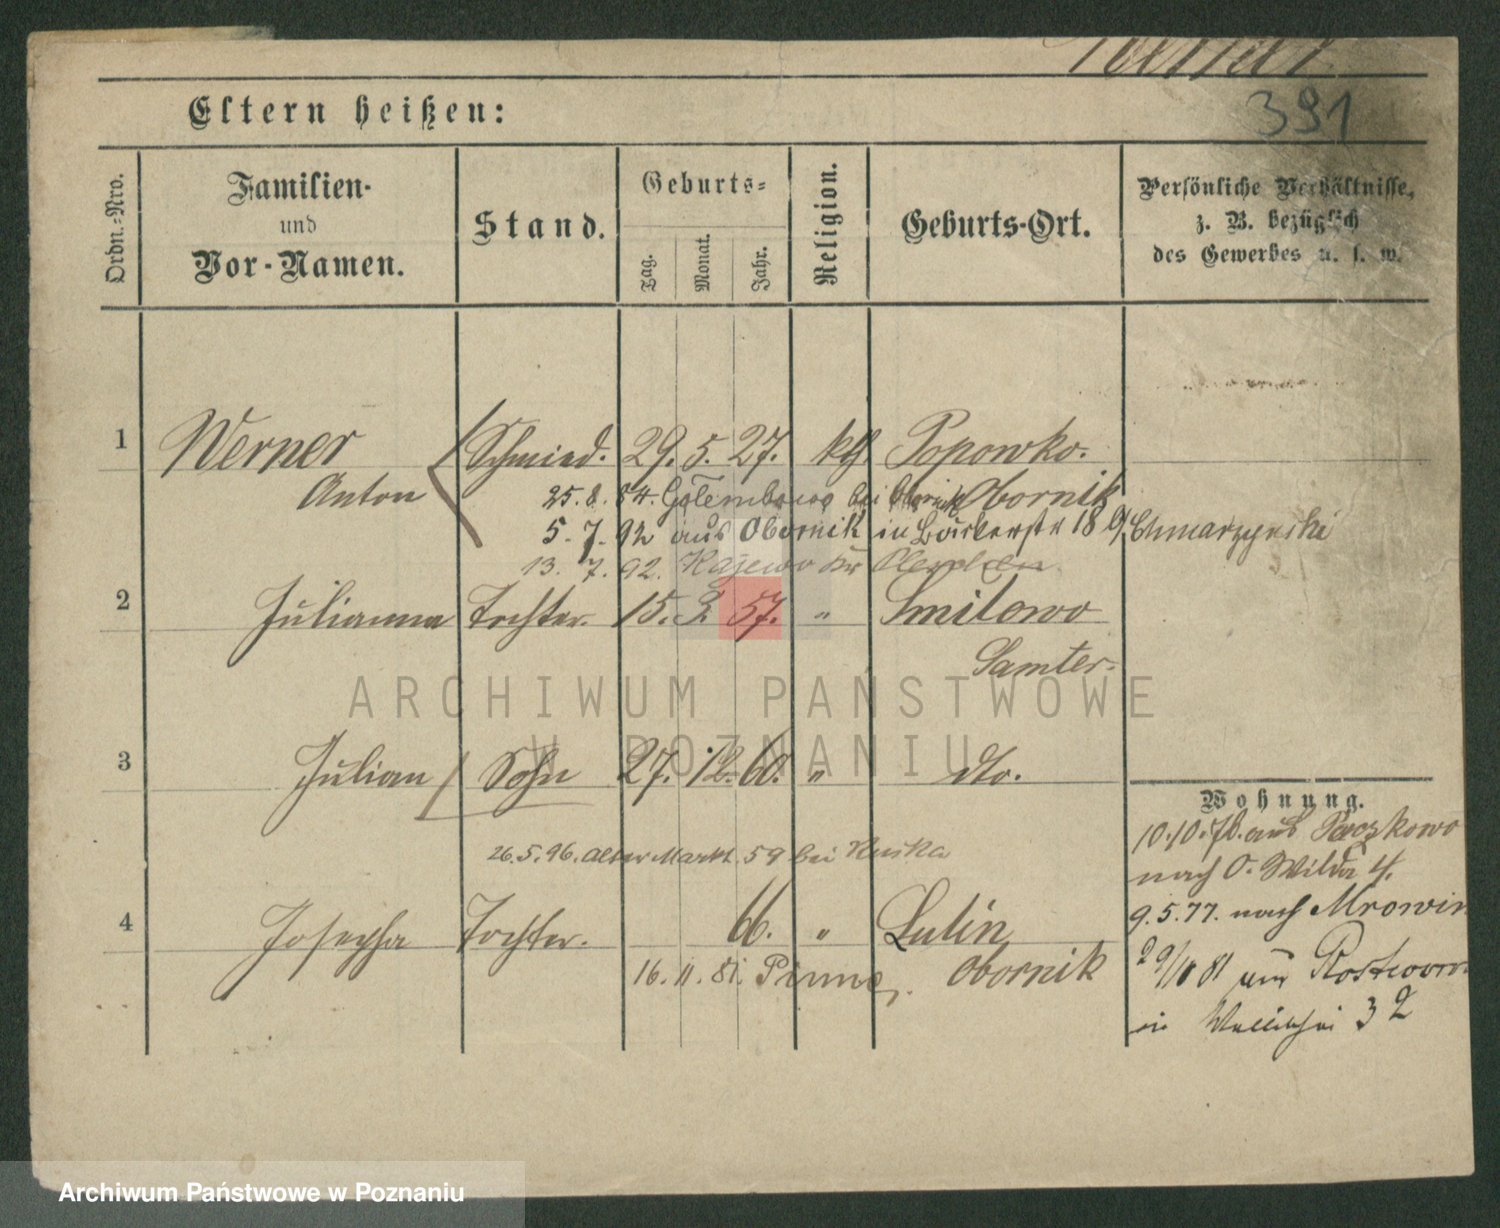 Werner
391
Eltern heißen:
Ordn.-Nro.
Familien-
und
Vor-Namen.
Stand.
Geburts-
Tag.
Monat.
Jahr.
Religion.
Geburts-Ort.
Persönliche Verhältnisse,
z. B. bezüglich
des Gewerbes u. s. w.
1 Werner Schmied. 29. 5. 27. kth. Popowko.
Anton Obornik
25. 8. 54. Golembowo bei Obornik
5. 7. 92 aus Obornik in Bäckerstr 18
13. 7. 92.
2 Julianna Tochter. 15. 2. 57. " Smilowo
Samter.
ARCHIWUM PAŃSTWOWE
W POZNANIU
3 Julian Sohn 27. 12. 60. " dto.
26.5.96. Alter Markt 59 bei
4 Josepha Tochter. 66. " Lulin
16. 11. 81. Pinne. Obornik
Wohnung.
10.10.76. aus
nach O. Wilda 4.
9.5.77. nach Mrowin
29/10 81 aus
in Wallischei 32
Archiwum Państwowe w Poznaniu